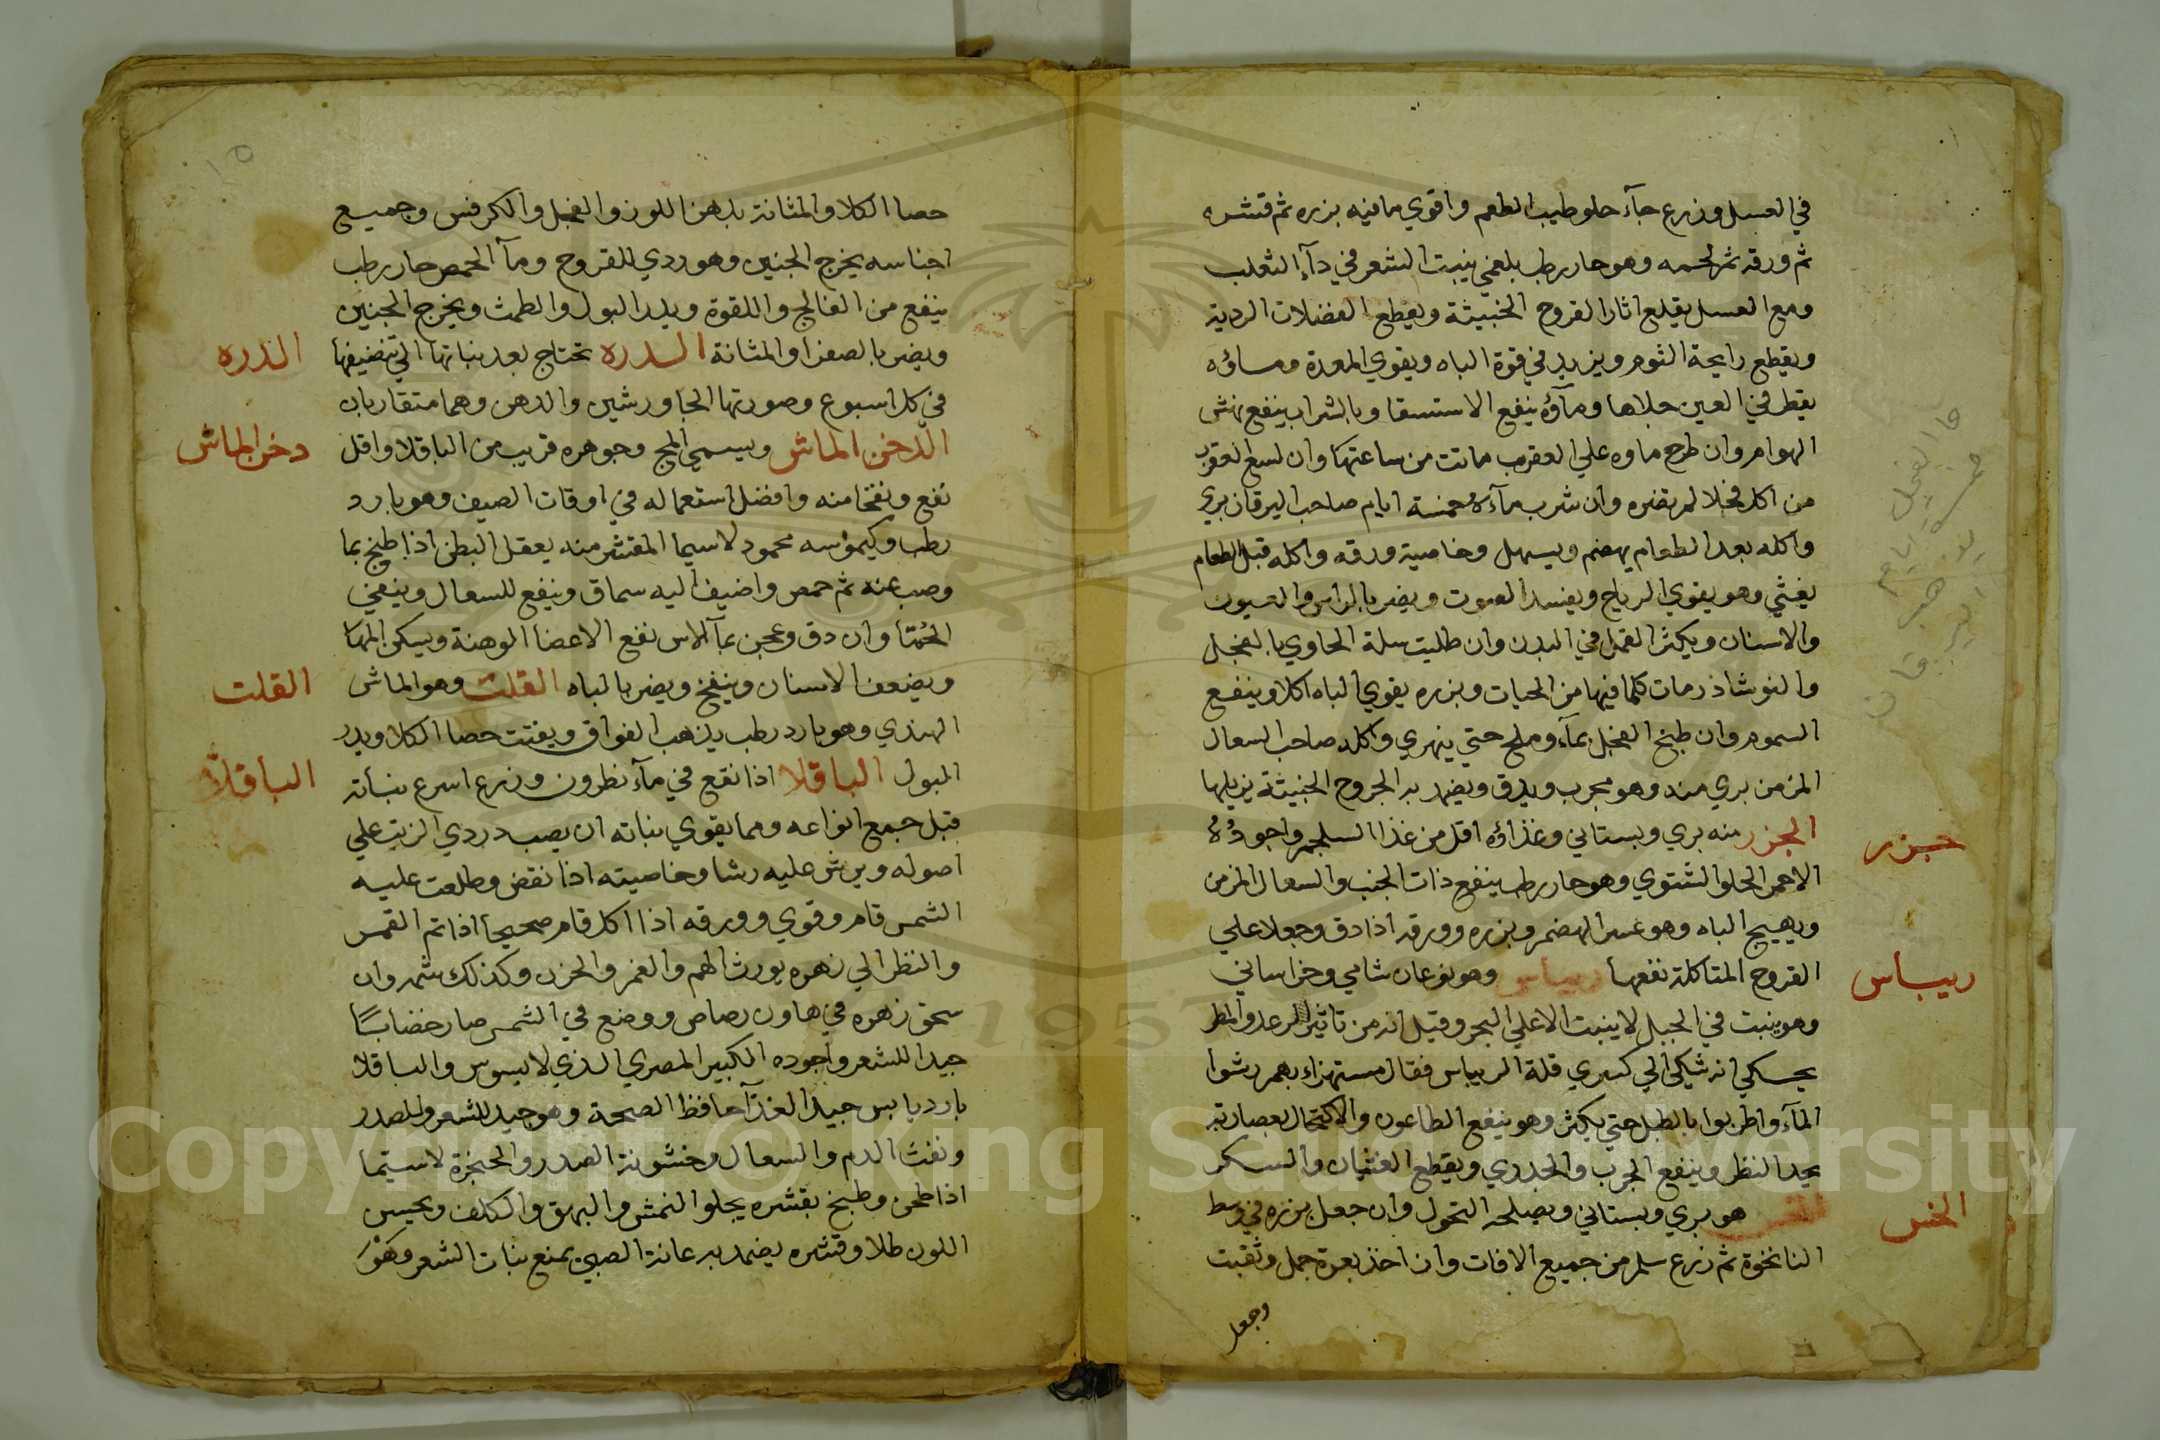 في العسل وزرع جآء حلو طيب الطعم واقوي ما فيه بزره ثم قشره
ثم ورقه ثم لحمه وهو حار رطب بلغمي ينبت الشعر في دآء الثعلب
ومع العسل يقلع اثار القروح الخبيثة ويقطع الفضلات الردية
ويقطع رايحة الثوم ويزيد في قوة الباه ويقوي المعدة وماؤه
يقطر في العين جلاها ومآؤه ينفع الاستسقا وبالشراب ينفع نهش
الهوام وان طرح ماوه علي العقرب ماتت من ساعتها وان لسع العقرب
من اكل فجلا لم يضره وان شرب مآءه خمسة ايام صاحب اليرقان بري
واكله بعد الطعام يهضم ويسهل وخاصية ورقه واكله قبل الطعام
يغثي وهو يقوي الرياح ويفسد الصوت ويضر بالراس والعيون
والاسنان ويكثر القمل في البدن وان طليت سلة الحاوي بالفجل
والنوشاذر مات كلما فيها من الحيات وبزره يقوي الباه اكلا وينفع
السموم وان طبخ الفجل بمآء وملح حتي ينهري واكله صاحب السعال
المزمن بري منه وهو مجرب ويدق ويضمد به الجروح الخبيثة يزيلها
الجزر منه بري وبستاني وغذاؤه اقل من غذا السلجم واجوده
الاحمر الحلو الشتوي وهو حار رطب ينفع ذات الجنب والسعال المزمن
ويهيج الباه وهو عسر الهضم وبزره وورقه اذا دق وجعلا علي
القروح المتاكلة نفعها ريباس وهو نوعان شامي وخراساني
وهو ينبت في الجبل لا ينبت الا علي الحجر وقيل انه من تاثير الرعد والمطر
يحكي انه شكي الي كسري قلة الريباس فقال مستهزاء بهم رشوا
المآء واضربوا بالطبل حتي يكثر وهو ينفع الطاعون والاكتحال بعصارته
يحد النظر وينفع الجرب والجدري ويقطع الغثيان والسكر
هو بري وبستاني ويصلحه التحول وان جعل بزره في وسط
النانخوة ثم زرع سلم من جميع الافات وان اخذ بعرة جمل وثقبت
وجعل
جزر
ريباس
الخس
ما الفجل
خمسة ايام
صاحب
اليرقان
١٥
حصا الكلا والمثانة بدهن اللوز والفجل والكرفس وجميع
اجناسه يخرج الجنين وهو ردي للقروح ومآ الحمص حار رطب
ينفع من الفالج واللقوة ويدر البول والطمث ويخرج الجنين
ويضر بالصفرا والمثانة الدره تحتاج بعد نباتها الي تنضيفها
في كل اسبوع وصورتها الجاورشين والدهن وهما متقاربان
الدخن الماش ويسمي المج وجوهره قريب من الباقلا واقل
نفع ونفخا منه وافضل استعماله في اوقات الصيف وهو بارد
رطب وكيموسه محمود لا سيما المقشر منه يعقل البطن اذا طبخ بما
وصب عنه ثم حمص واضيف اليه سماق وينفع للسعال وينفي
الحُمّا وان دق وعجن بمآ الاس نفع الاعضا الوهنة ويسكن المها
ويضعف الاسنان وينفخ ويضر بالباه القلت وهو الماش
الهندي وهو بارد رطب يذهب الفواق ويفتت حصا الكلا ويدر
البول الباقلا اذا نقع في مآء نطرون وزرع اسرع نباته
قبل جميع انواعه ومما يقوي نباته ان يصب دردي الزيت علي
اصوله ويرش عليه رشا وخاصيته اذا نقض وطلعت عليه
الشمس قام وقوي وورقه اذا اكل قام صحيحا اذا تم القمر
والنظر الي زهره يورث الهم والغم والحزن وكذلك شمه وان
سحق زهره في هاون رصاص ووضع في الشمس صار خضابًا
جيدا للشعر واجوده الكبير المصري الذي لا يسوس والباقلا
بارد يابس جيد الغذآ حافظ الصحة وهو جيد للشعر والصدر
ونفث الدم والسعال وخشونة الصدر والحنجرة لا سيما
اذا طحن وطبخ بقشره يجلو النمش والبهق والكلف ويحسن
اللون طلا وقشره يضمد به عانة الصبي يمنع نبات الشعر وهو
الذره
دخن الماش
القلت
الباقلا
Copyright © King Saud University
1957